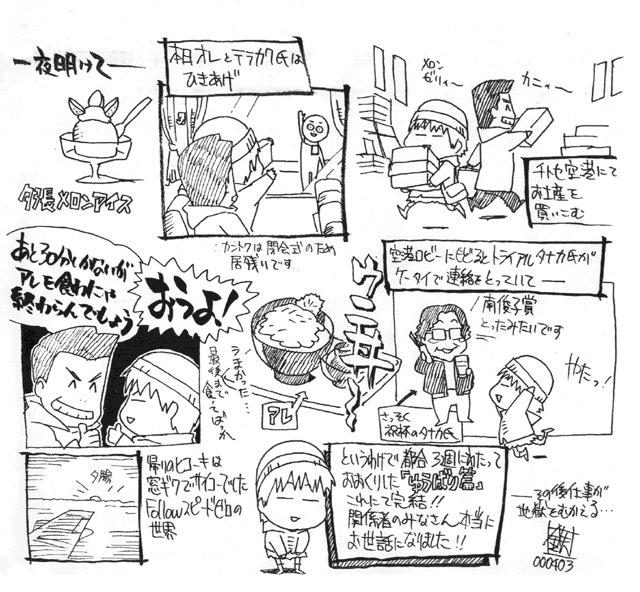 一夜明けて——
夕張メロンアイス
本日オレとテラカワ氏は
ひきあげ
カントクは閉会式のため
居残りです
メロン
ゼリィ〜
カニィ〜
チトセ空港にて
お土産を
買いこむ
あと30分しかないが
アレを食わにゃ
終わらんでしょう
おうよ!
ウニ丼〜
うまかった…
最後まで
食いそばぐれ
アレ
空港ロビーにもどるとトライアルタナカ氏が
ケータイで連絡をとっていて——
南俊子賞
とったみたいです
さっそく
祝杯のタナカ氏
やたっ!
夕陽
帰りのヒコーキは
窓ギワでサイコーでした
Followスピードゼロの
世界
というわけで都合3週にわたって
おおくりした『ゆうばり篇』
これにて完結!!
関係者のみなさん本当に
お世話になりました!!
——その後仕事が
地獄をむかえる…
000403